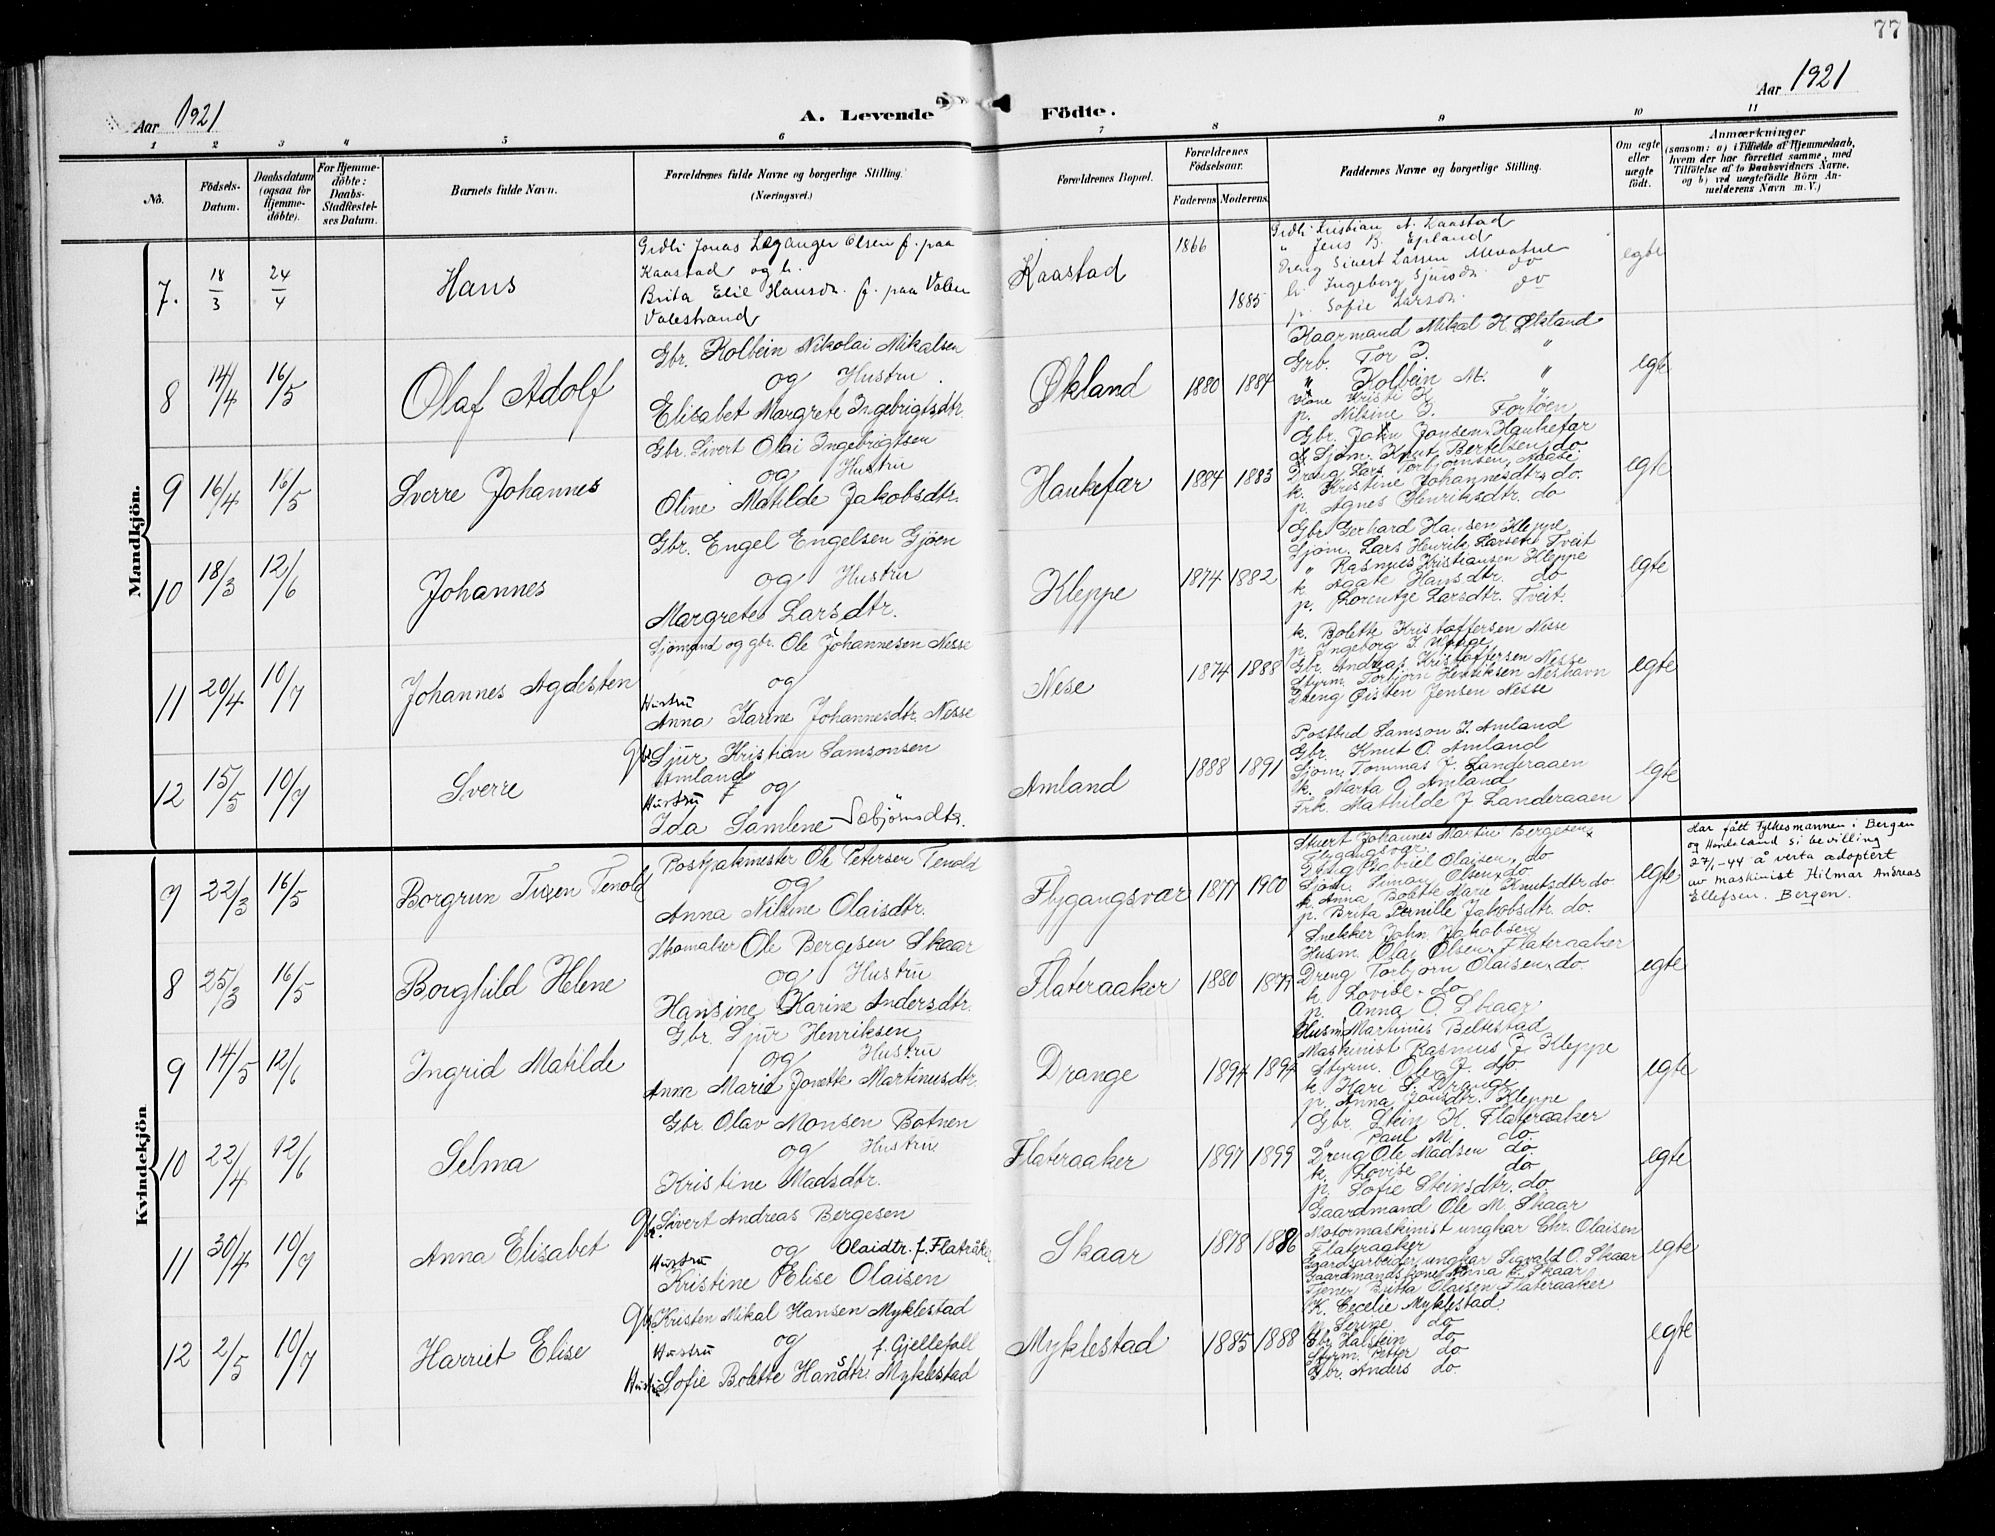 77
Aar 1921
A. Levende Födte.
Aar 1921
1 2 3 4 5 6 7 8 9 10 11
No.
Födsels-Datum.
Daabsdatum (ogsaa for Hjemme-döbte).
For Hjemme-döbte: Daabs-Stadfæstel-ses Datum.
Barnets fulde Navn.
Forældrenes fulde Navne og borgerlige Stilling. (Næringsvei.)
Forældrenes Bopæl.
Forældrenes Födselsaar.
Faderens. Moderens.
Faddernes Navne og borgerlige Stilling.
Om ægte eller uægte födt.
Anmærkninger
(saasom: a) i Tilfælde af Hjemmedaab, hvem der har forrettet samme, med Tilföielse af to Daabsvidners Navne, og b) ved uægtefödte Börn An-melderens Navn m. V.)
Mandkjön.
7. 18/3 24/4 Hans
Jonas Leganger Olsen f. paa
Kaastad og h.
Brita Elie Hansdr. f. paa Valen
Valestrand
Kaastad 1866 1885
Kristian A. Kaastad
" Jens B. Epland
Dreng Sivert Larsen do
h. Ingeborg Sjursdr. do
p. Sofie Larsdr.
egte
8 14/4 16/5 Olaf Adolf
Gbr. Kolbein Nikolai Mikalsen
og Hustru
Elisabet Margrete Ingebrigtsdtr.
Økland 1880 1884
Kaarmand Mikal K. Økland
Grb. Tor J. "
" Kolbein M. "
Kone Kristi K. "
p. Nilsine J. Fortøen
egte
9 16/4 16/5 Sverre Johannes
Gbr. Sivert Olai Ingebrigtsen
og Hustru
Oline Matilde Jakobsdtr.
Haukefær 1884 1883
Gbr. John Jonsen Haukefær
Sjøm. Knut Bertelsen do
Dreng Lars Torbjørnsen,
k. Kristine Johannesdtr. do.
p. Agnes Henriksdtr. do
egte
10 18/3 12/6 Johannes
Gbr. Engel Engelsen Gjøen
og Hustru
Margrete Larsdtr.
Kleppe 1874 1882
Gbr. Gerhard Hansen Kleppe
Sjøm. Lars Henrik Larsen Tveit
" Rasmus Kristiansen Kleppe
k. Agate Hansdtr. do
p. Lorentze Larsdtr. Tveit.
egte
11 20/4 10/7 Johannes Agdesten
Sjømand og gbr. Ole Johannesen Nesse
og
Hustru
Anna Karine Johannesdtr. Nesse
Nese 1874 1888
k. Bolette Kristoffersen Nesse
p. Ingeborg J. Waage
Gbr. Andreas Kristoffersen Nesse
Styrm. Torbjørn Henriksen Neshavn
Dreng Øisten Jensen Nesse
egte
12 15/5 10/7 Sverre
Gbr. Sjur Kristian Samsonsen
Amland og
Hustru
Ida Samlene Sæbjörnsdtr.
Amland 1888 1891
Postbud Samson J. Amland
Gbr. Knut O. Amland
Sjøm. Tommas J. Landeraaen
k. Marta O. Amland
Frk. Mathilde J Landeraaen
egte
Kvindekjön
7 22/3 16/5 Borgrun Tuxen Tenold
Postpakmester Ole Petersen Tenold
og
Anna Nilsine Olaisdtr.
Flygangsvær 1877 1900
Johannes Martin Bergesen,
Gabriel Olaisen, do
Sjøm. Simon Olsen, do
k. Anna Bolette Marie Knutsdtr. do
p. Brita Pernille Jakobsdtr. do.
egte
Har fått Fylkesmannen i Bergen
og Hordaland si bevilling
27/1-44 å verta adoptert
av maskinist Hilmar Andreas
Ellefsen. Bergen.
8 25/3 16/5 Borghild Helene
Skomaker Ole Bergesen Skaar
og Hustru
Hansine Karine Andersdtr.
Flateraaker 1880 1879
Snekker John Jakobsen
Husm. Olai Olsen Flateraaker
Dreng Torbjørn Olaisen. do.
k. Lovise do
p. Anna O. Skaar
egte
9 14/5 12/6 Ingrid Matilde
Gbr. Sjur Henriksen
og Hustru
Anna Marie Jonette Martinusdtr.
Drange 1894 1894
Husm. Martinus Beltestad
Maskinist Rasmus J. Kleppe
Styrm. Ole J. do.
k. Kari S. Drange
p. Anna Jonsdtr. Kleppe
egte
10 22/4 12/6 Selma
Gbr. Olav Monsen Botnen
og Hustru
Kristine Madsdtr.
Flateraaker 1897 1899
Gbr. Stein K. Flateraaker
" Paul M. do.
Dreng Ole Madsen do
k. Lovise do
p. Sofie Steinsdtr. do
egte
11 30/4 10/7 Anna Elisabet
Gbr. Sivert Andreas Bergesen
og Olaidtr. f. Flatråker
Hustru
Kristine Elise Olaisen
Skaar 1878 1886
Gaardmand Ole M. Skaar
Motormaskinist ungkar Chr. Olaisen
Flateraaker
Gaardsarbeider ungkar Sigvald O. Skaar
Gaardmandskone Anna Skaar
Tjener Britta Olaisen Flateraaker
egte
12 2/5 10/7 Harriet Elise
Gbr. Kristen Mikal Hansen Myklestad
og f. Gjellefall
Hustru
Hustru Sofie Bolette Hansdtr. Myklestad
Myklestad 1885 1888
K. Cecelie Myklestad
p. Serine do
Gbr. Halstein do
Styrm. Petter do
Gbr. Anders do.
egte